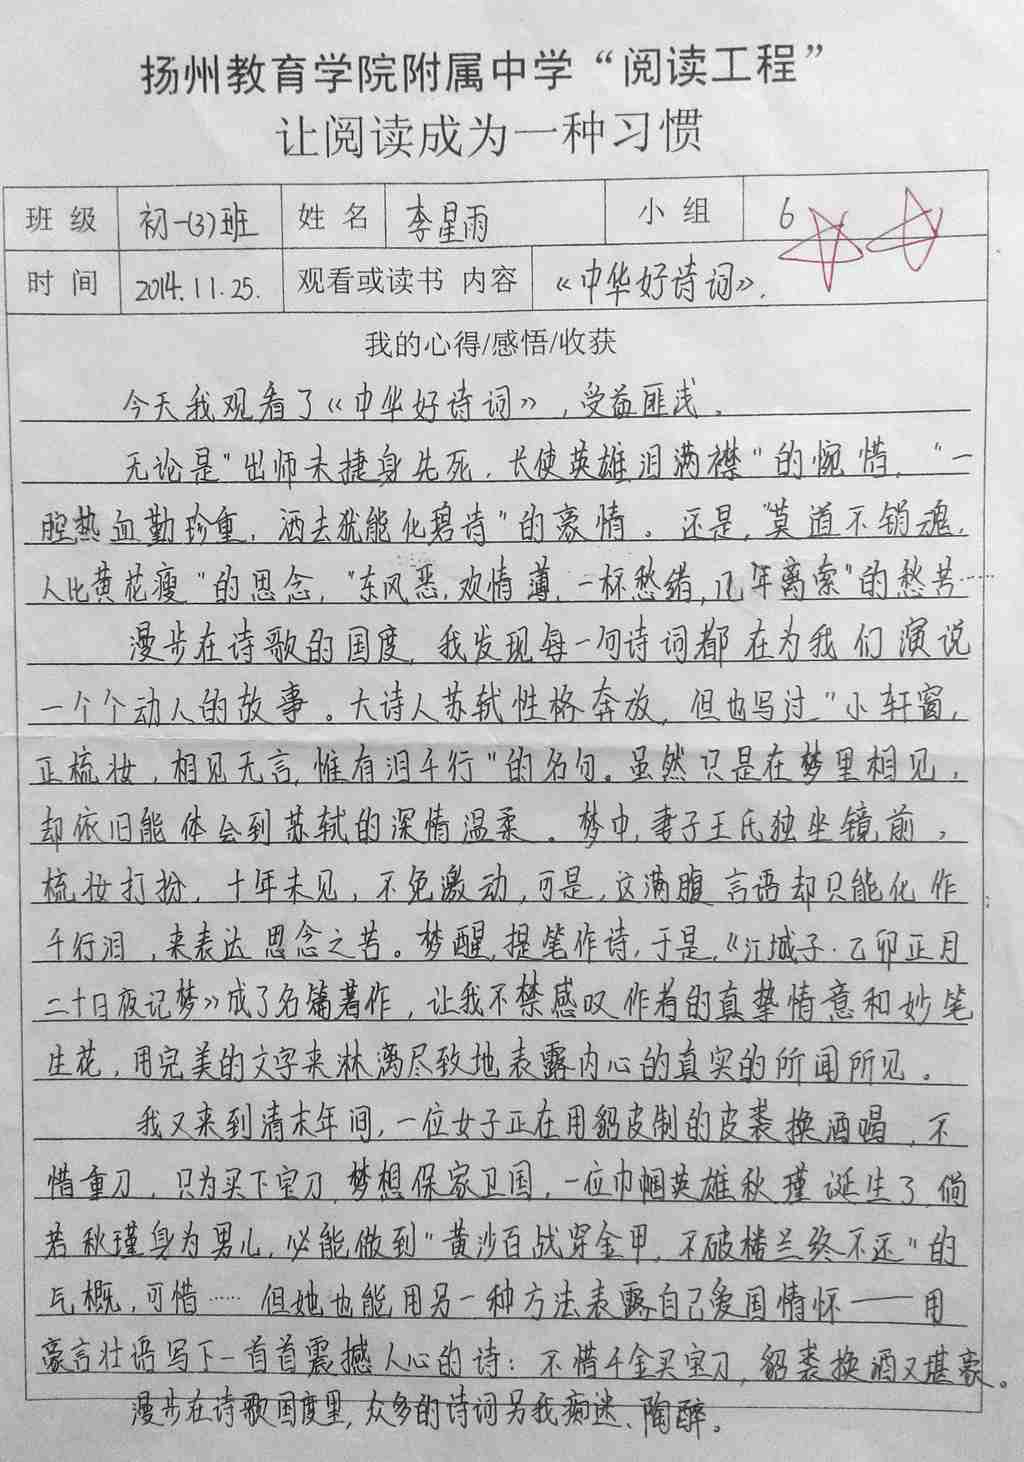 扬州教育学院附属中学“阅读工程”
让阅读成为一种习惯
班 级 初一(3)班 姓 名 李星雨 小 组 6
时 间 2014.11.25. 观看或读书 内容 《中华好诗词》.
我的心得/感悟/收获
今天我观看了《中华好诗词》,受益匪浅。
无论是“出师未捷身先死,长使英雄泪满襟”的惋惜,“一
腔热血勤珍重,洒去犹能化碧涛”的豪情。还是,“莫道不销魂,
人比黄花瘦”的思念,“东风恶,欢情薄,一杯愁绪,几年离索”的愁苦……
漫步在诗歌的国度,我发现每一句诗词都在为我们演说
一个个动人的故事。大诗人苏轼性格奔放,但也写过“小轩窗,
正梳妆,相见无言,惟有泪千行”的名句。虽然只是在梦里相见,
却依旧能体会到苏轼的深情温柔。梦中,妻子王氏独坐镜前,
梳妆打扮,十年未见,不免激动,可是,这满腹言语却只能化作
千行泪,来表达思念之苦。梦醒,提笔作诗,于是,《江城子·乙卯正月
二十日夜记梦》成了名篇著作,让我不禁感叹作者的真挚情意和妙笔
生花,用完美的文字来淋漓尽致地表露内心的真实的所闻所见。
我又来到清末年间,一位女子正在用貂皮制的皮裘换酒喝,不
惜重刀,只为买下宝刀,梦想保家卫国,一位巾帼英雄秋瑾诞生了,倘
若秋瑾身为男儿,必能做到“黄沙百战穿金甲,不破楼兰终不还”的
气概,可惜……但她也能用另一种方法表露自己爱国情怀——用
豪言壮语写下一首首震撼人心的诗:不惜千金买宝刀,貂裘换酒又堪豪。
漫步在诗歌国度里,众多的诗词另我痴迷、陶醉。